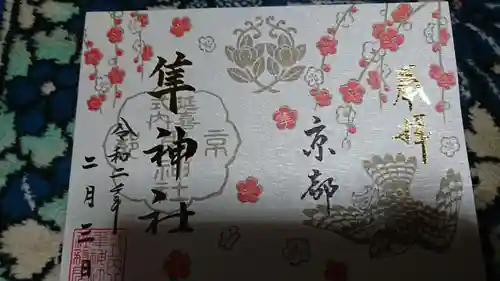 奉拝
京都
隼神社
令和二年
二月三日
京
延喜
式内
隼神社